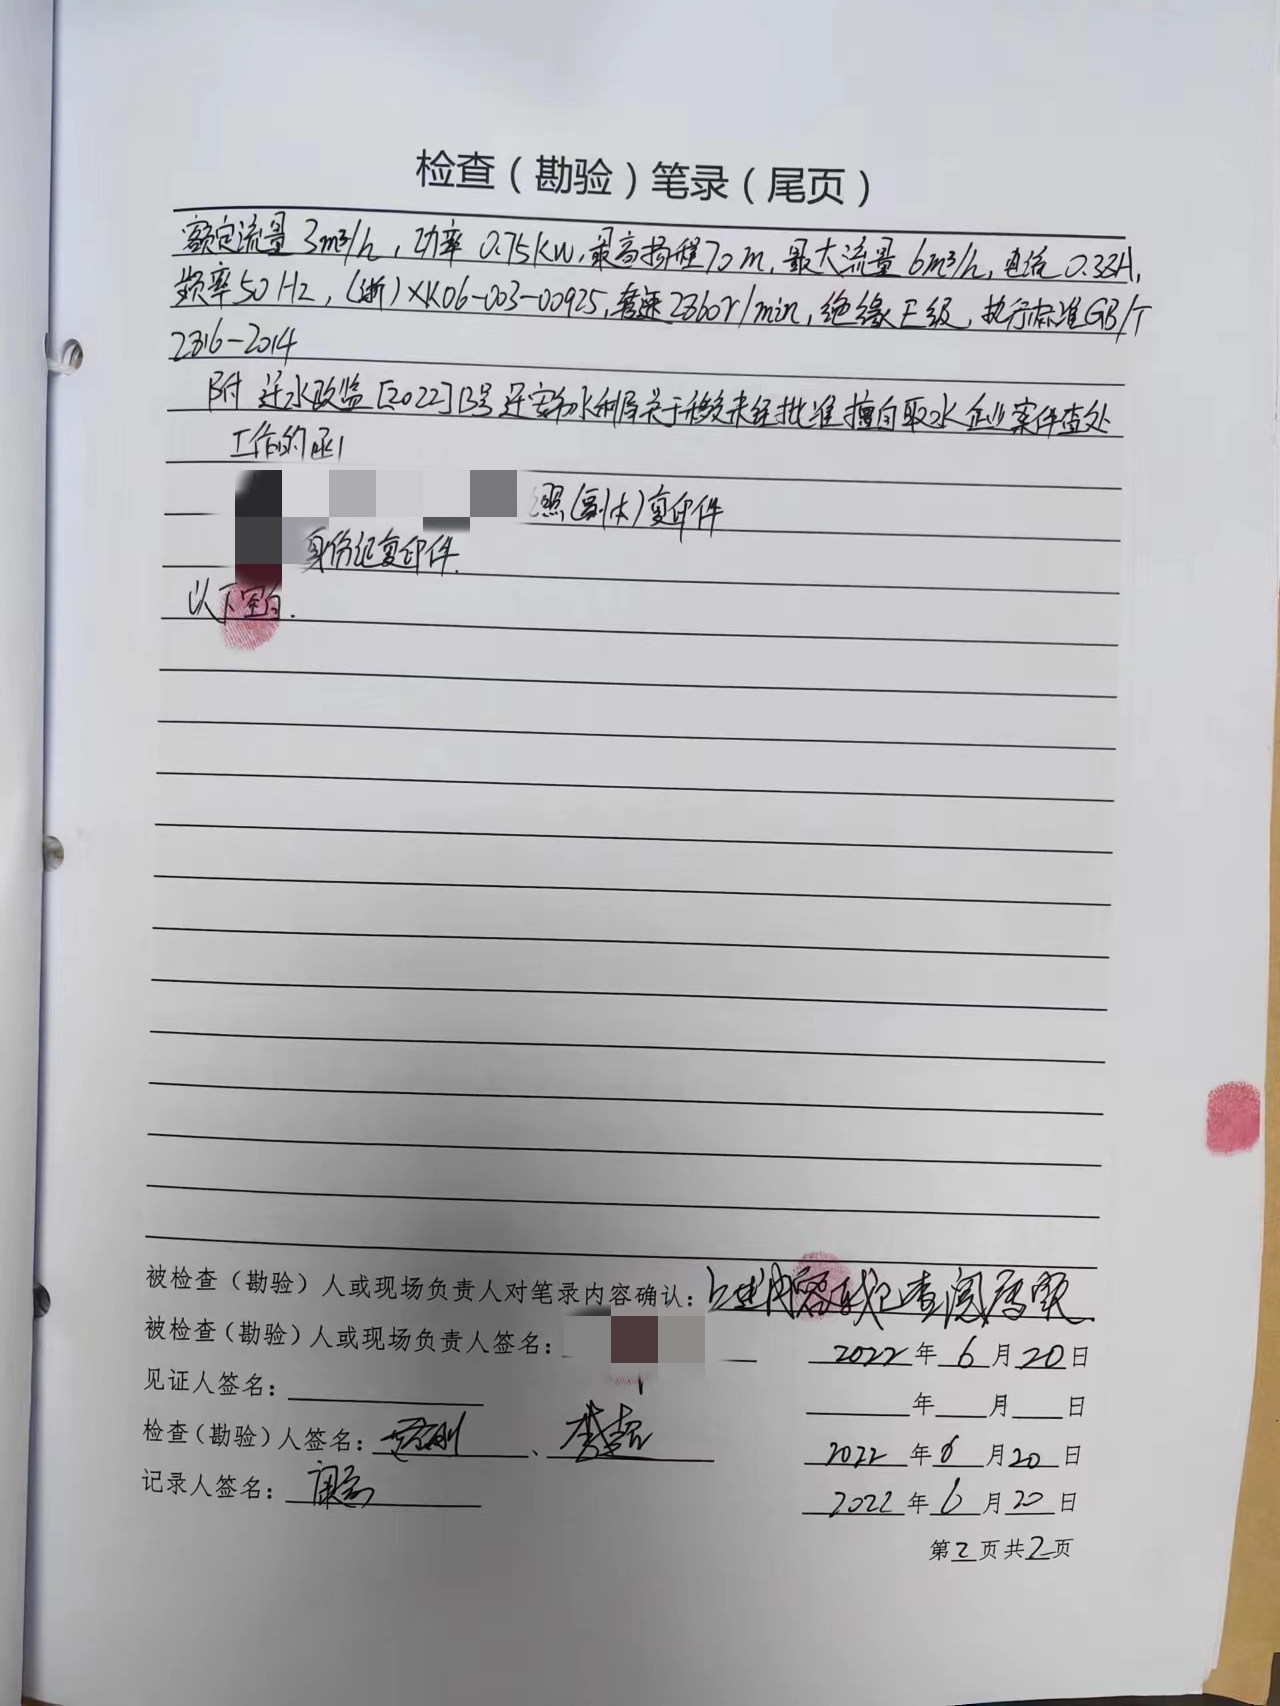 检查（勘验）笔录（尾页）
额定流量3m³/h，功率0.75KW，最高扬程70m，最大流量6m³/h，电流0.33A，
频率50Hz，（浙）XK06-003-00925，转速2360r/min，绝缘E级，执行标准GB/T
2316-2014
附 迁水政监[2022]13号迁安市水利局关于移交未经批准擅自取水企业案件查处
工作的函1
照（副本）复印件
身份证复印件.
以下空白.
被检查（勘验）人或现场负责人对笔录内容确认：上述内容我已查阅属实
被检查（勘验）人或现场负责人签名： 2022年6月20日
见证人签名： 年 月 日
检查（勘验）人签名： 、 2022年6月20日
记录人签名： 2022年6月20日
第2页共2页